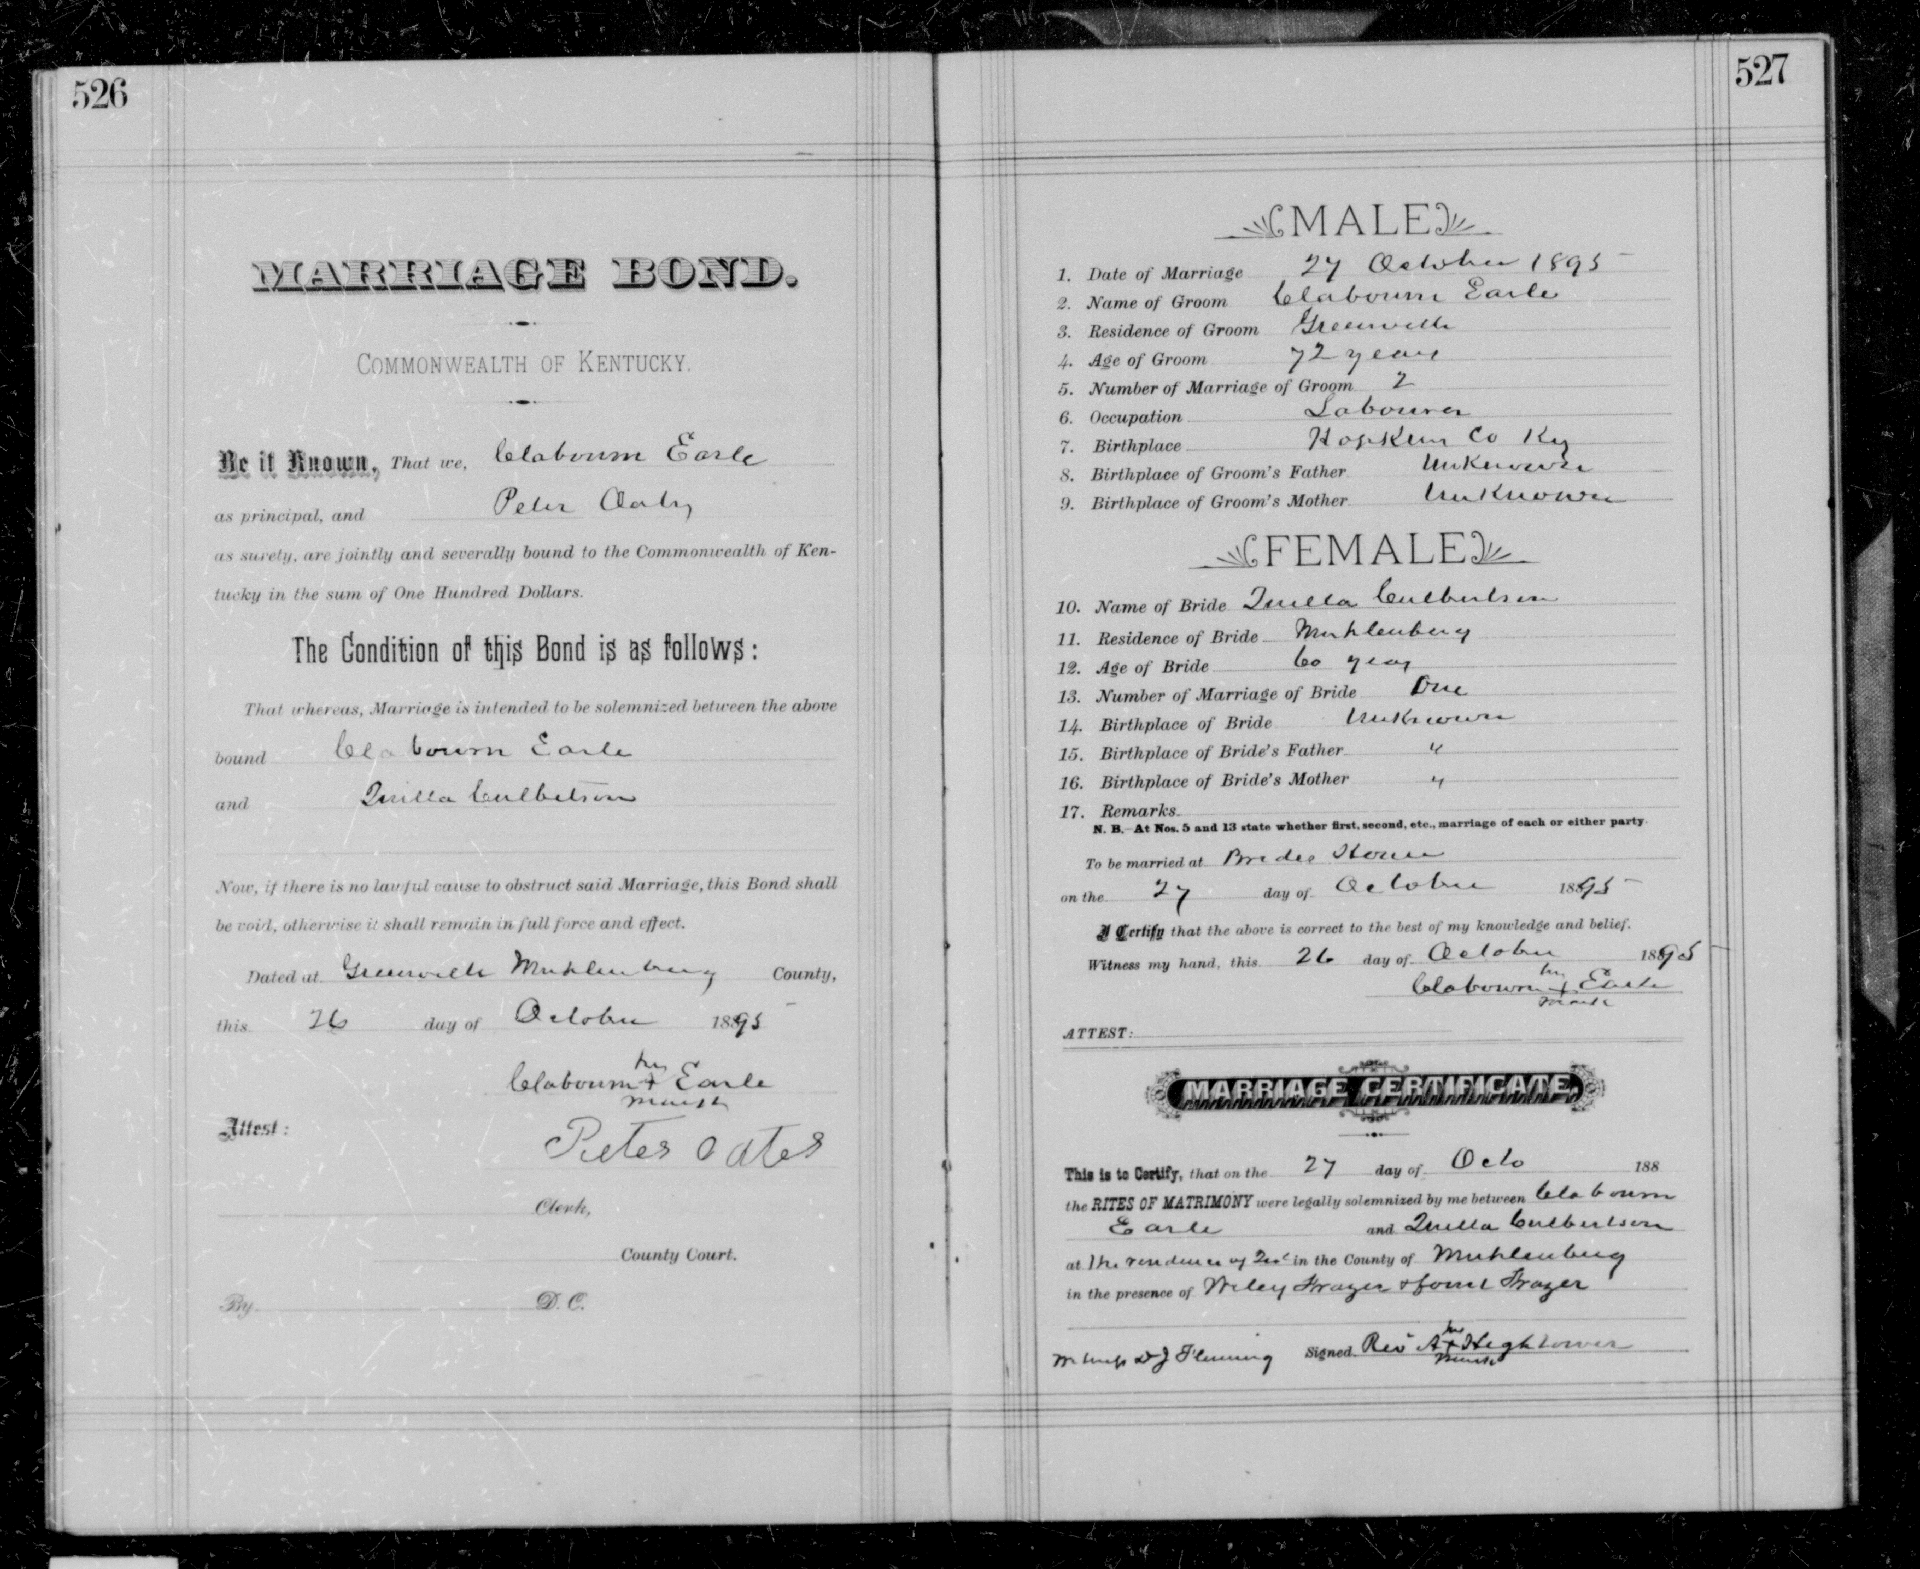 526
MARRIAGE BOND.
COMMONWEALTH OF KENTUCKY.
Be it Known, That we, Clabourn Earle
as principal, and Peter Oats
as surety, are jointly and severally bound to the Commonwealth of Ken-
tucky in the sum of One Hundred Dollars.
The Condition of this Bond is as follows:
That whereas, Marriage is intended to be solemnized between the above
bound Clabourn Earle
and Culbertson
Now, if there is no lawful cause to obstruct said Marriage, this Bond shall
be void, otherwise it shall remain in full force and effect.
Dated at Greenville Muhlenberg County,
this 26 day of October 1895
his
Clabourn + Earle
mark
Attest:
Peter Oates
Clerk,
County Court.
By D. C.
527
MALE
1. Date of Marriage 27 October 1895
2. Name of Groom Clabourn Earle
3. Residence of Groom Greenville
4. Age of Groom 72 years
5. Number of Marriage of Groom 2
6. Occupation Labourer
7. Birthplace Hopkins Co Ky
8. Birthplace of Groom's Father Unknown
9. Birthplace of Groom's Mother Unknown
FEMALE
10. Name of Bride Culbertson
11. Residence of Bride Muhlenberg
12. Age of Bride 60 years
13. Number of Marriage of Bride One
14. Birthplace of Bride Unknown
15. Birthplace of Bride's Father "
16. Birthplace of Bride's Mother "
17. Remarks
N. B.—At Nos. 5 and 13 state whether first, second, etc., marriage of each or either party.
To be married at Brides House
on the 27 day of October 1895
I Certify that the above is correct to the best of my knowledge and belief.
Witness my hand, this 26 day of October 1895
his
Clabourn + Earle
mark
ATTEST:
MARRIAGE CERTIFICATE.
This is to Certify, that on the 27 day of Octo 188
the RITES OF MATRIMONY were legally solemnized by me between Clabourn
Earle and Culbertson
at the residence of in the County of Muhlenberg
in the presence of Wiley Frazer & Frazer
his
Witness D J Fleming Signed Rev A + Hightower
mark